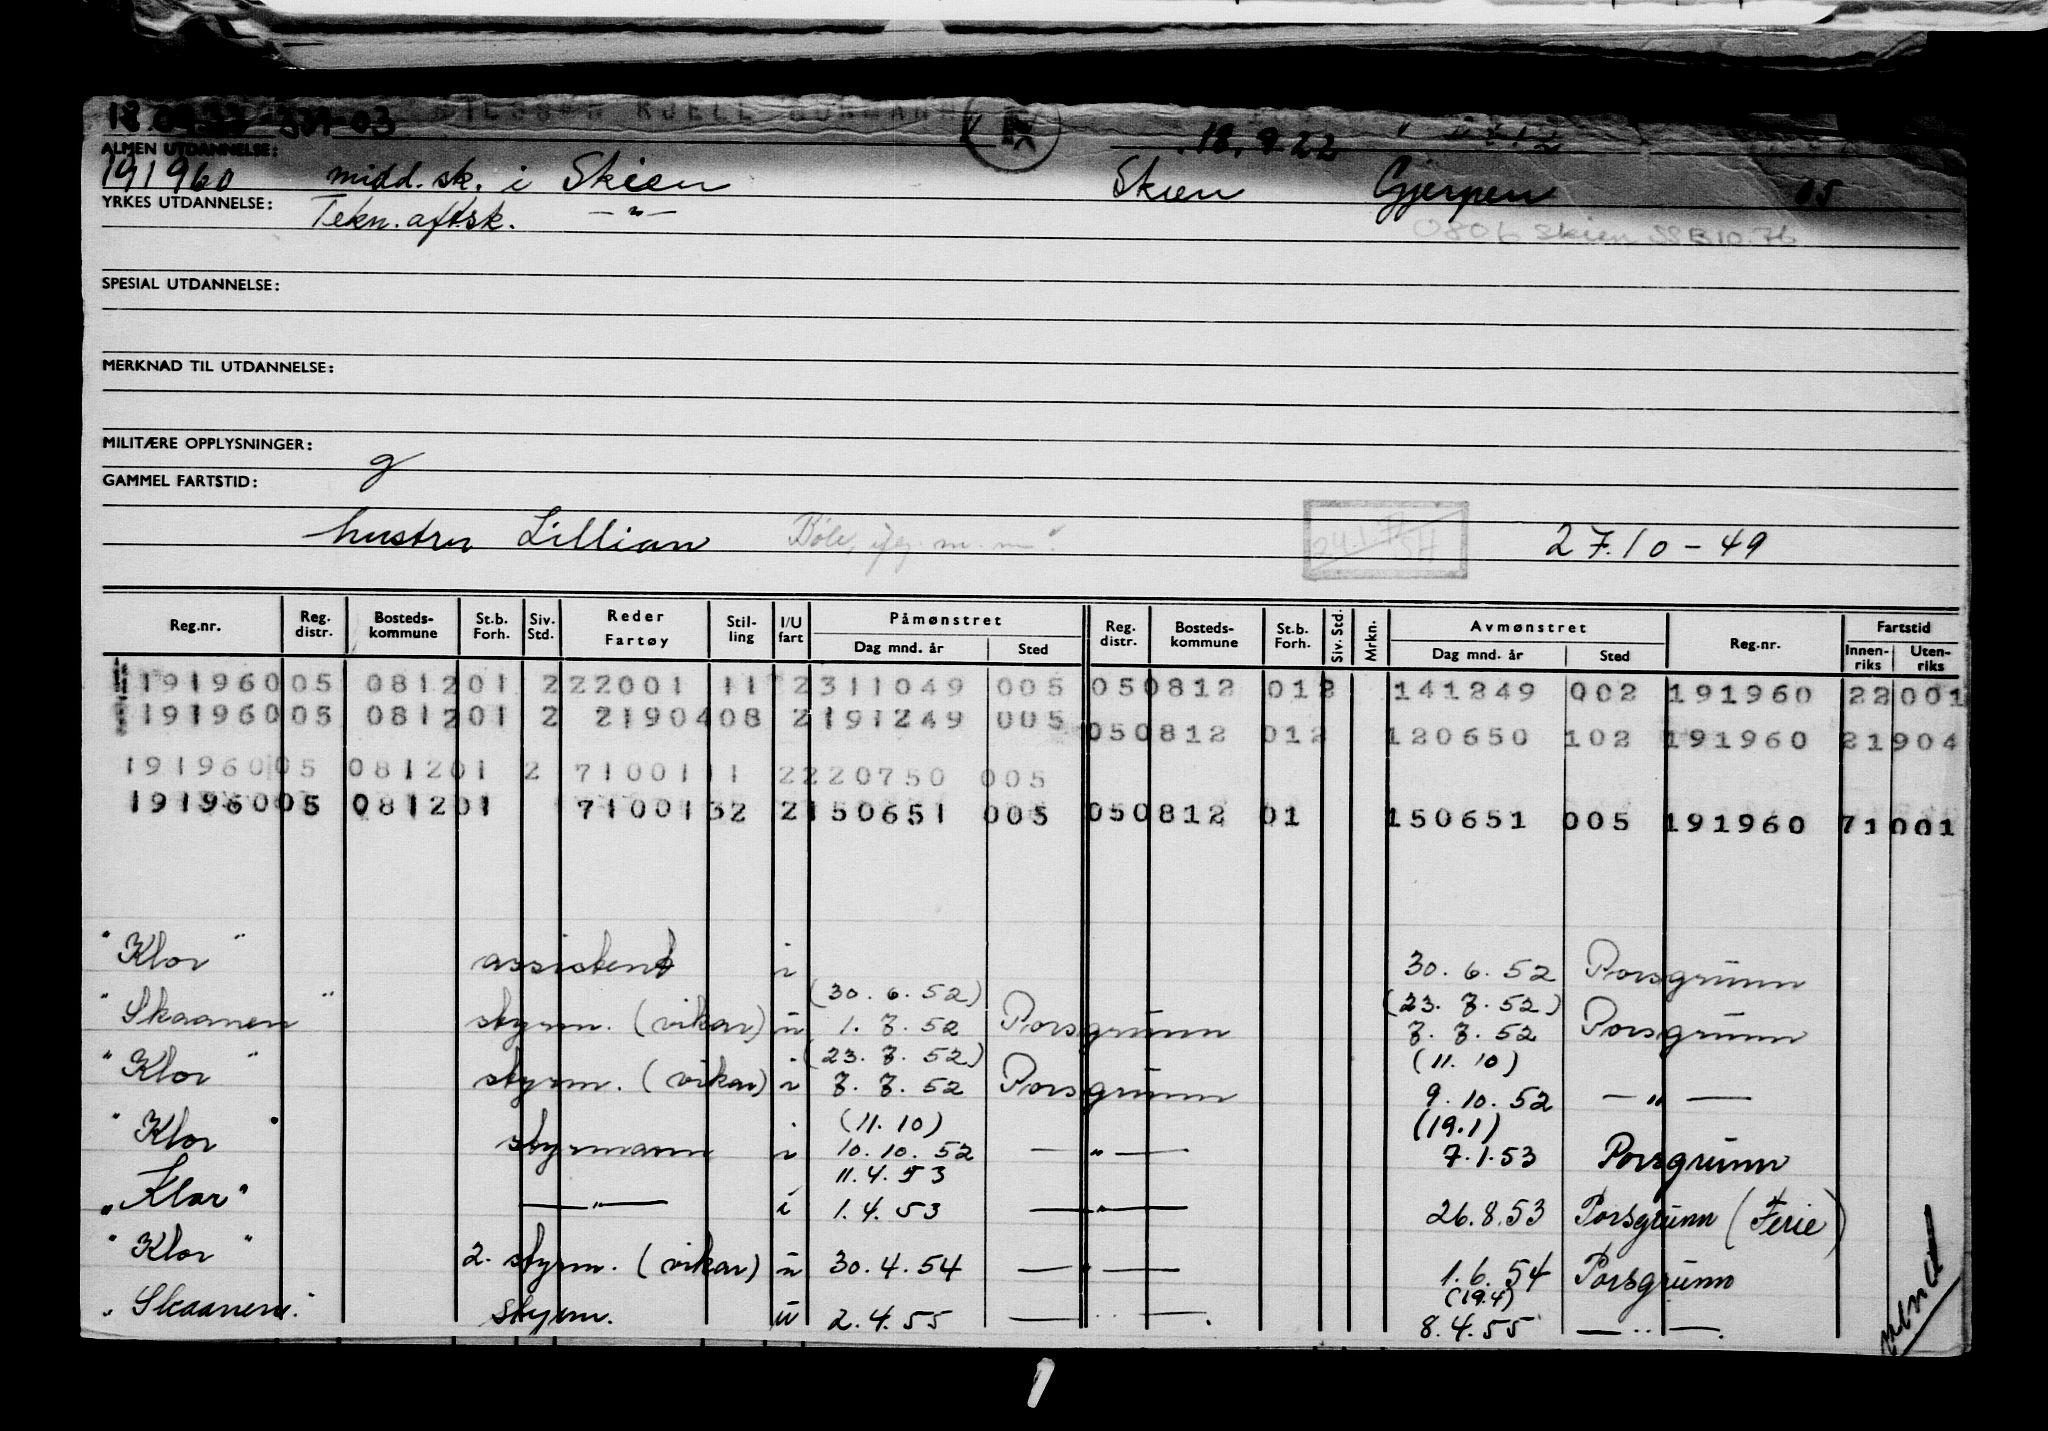 KJELL
18.9.22
ALMEN UTDANNELSE:
191960 midd. sk. i Skien Skien Gjerpen 05
YRKES UTDANNELSE: Tekn. aftsk. — " —
0806 Skien SSB 10.76
SPESIAL UTDANNELSE:
MERKNAD TIL UTDANNELSE:
MILITÆRE OPPLYSNINGER:
GAMMEL FARTSTID:
hustru Lillian 27.10-49
Reg.nr. Reg. distr. Bosteds-kommune St.b. Forh. Siv. Std. Reder Fartøy Stil-ling I/U fart Påmønstret Dag mnd. år Sted Reg. distr. Bosteds-kommune St.b. Forh. Siv. Std. Mrkn. Avmønstret Dag mnd. år Sted Reg.nr. Fartstid Innen-riks Uten-riks
191960 05 081201 2 22001 11 2 311049 005 050812 012 141249 002 191960 22001
191960 05 081201 2 21904 08 2 191249 005 050812 012 120650 102 191960 21904
191960 05 081201 2 71001 11 2 220750 005
191960 05 081201 71001 32 2 150651 005 050812 01 150651 005 191960 71001
"Klor" assistent i 30.6.52 Porsgrunn
(30.6.52) (23.7.52)
"Skaanen" styrm. (vikar) u 1.7.52 Porsgrunn 7.7.52 Porsgrunn
(23.7.52) (11.10)
"Klor" styrm. (vikar) i 7.7.52 Porsgrunn 9.10.52 — " —
(11.10) (19.1)
"Klor" styrmann i 10.10.52 — " — 7.1.53 Porsgrunn
11.4.53
"Klor" — " — i 1.4.53 — " — 26.8.53 Porsgrunn (Ferie)
"Klor" 2. styrm. (vikar) u 30.4.54 — " — 1.6.54 Porsgrunn
(19.4)
"Skaanen" styrm. u 2.4.55 — " — 8.4.55 — " —
1